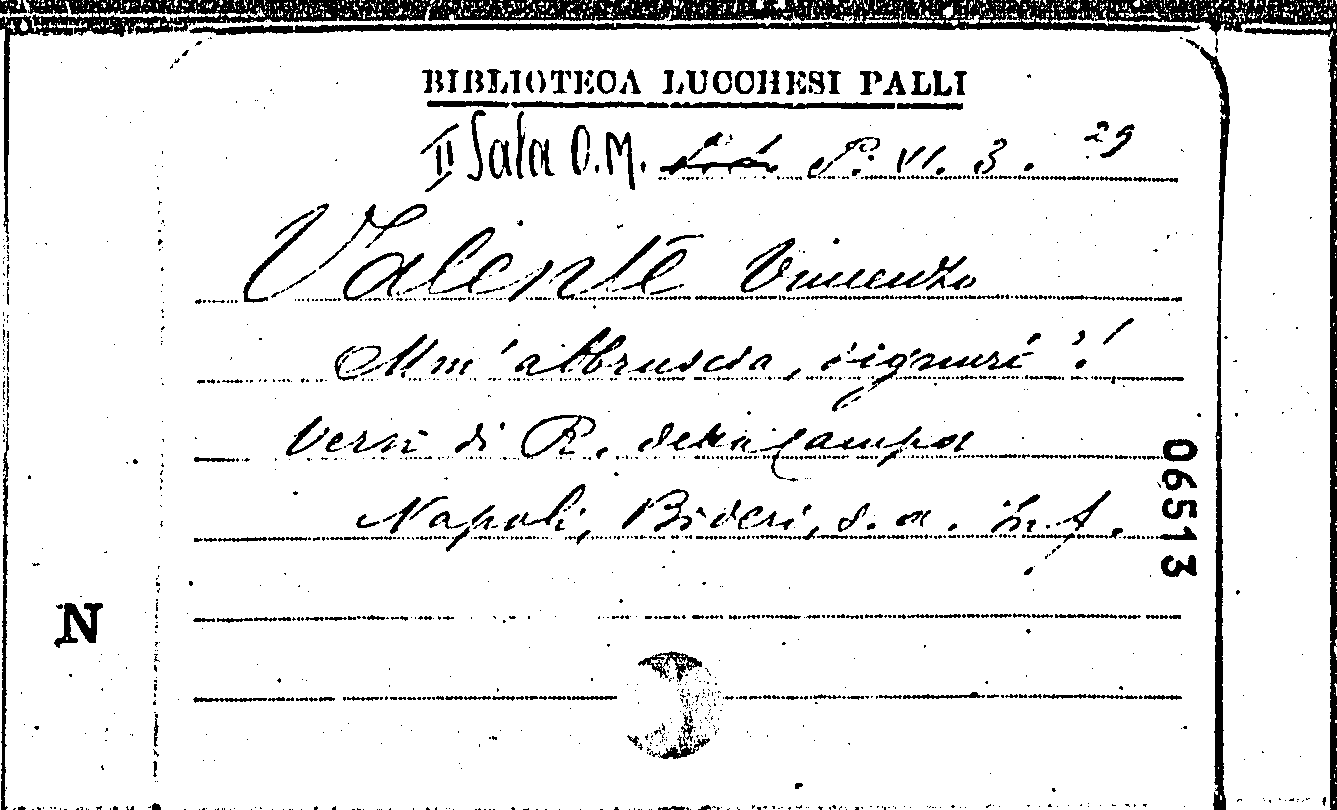 BIBLIOTECA LUCCHESI PALLI
II Sala O.M. P. VI. 3. 29
Valente Vincenzo
Mm'abbruscia, signurì!
Versi di R. della Campa
Napoli, Bideri, s.a. in f.
06513
N